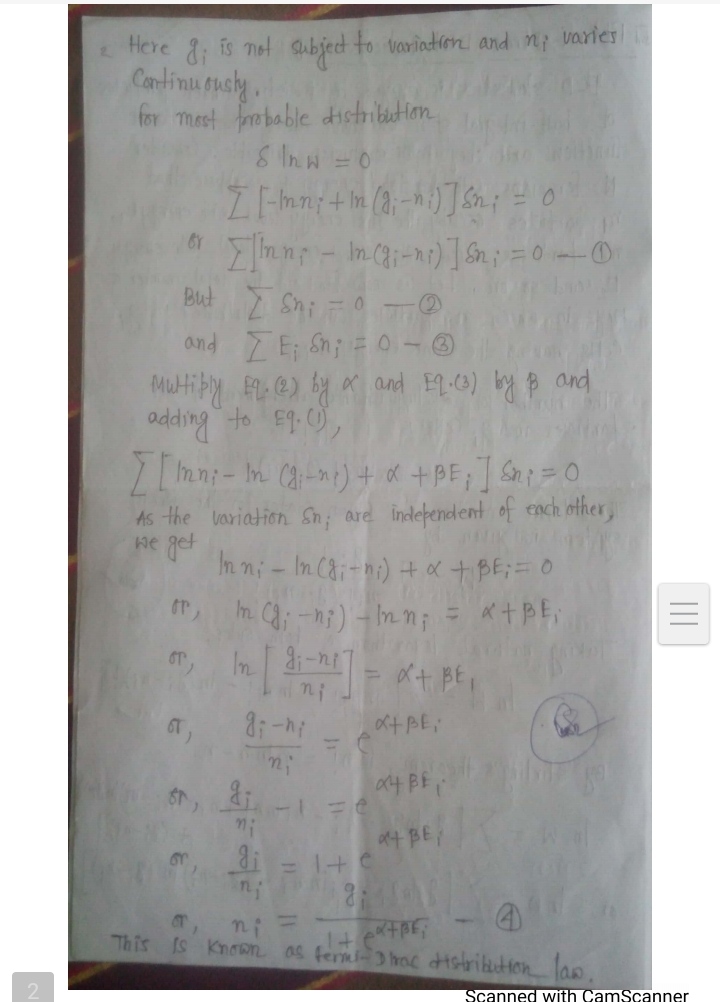 Here gᵢ is not subject to variation and nᵢ varies
Continuously.
for most probable distribution
δ ln w = 0
∑ [-ln nᵢ + ln (gᵢ-nᵢ)] δnᵢ = 0
or ∑ [ln nᵢ - ln (gᵢ-nᵢ)] δnᵢ = 0 — ①
But ∑ δnᵢ = 0 — ②
and ∑ Eᵢ δnᵢ = 0 — ③
Multiply Eq.(2) by α and Eq.(3) by β and
adding to Eq.(1),
∑ [ln nᵢ - ln (gᵢ-nᵢ) + α + βEᵢ] δnᵢ = 0
As the variation δnᵢ are independent of each other,
we get
ln nᵢ - ln (gᵢ-nᵢ) + α + βEᵢ = 0
or, ln (gᵢ-nᵢ) - ln nᵢ = α + βEᵢ
or, ln [(gᵢ-nᵢ)/nᵢ] = α + βEᵢ
or, (gᵢ-nᵢ)/nᵢ = e^(α+βEᵢ)
or, gᵢ/nᵢ - 1 = e^(α+βEᵢ)
or, gᵢ/nᵢ = 1 + e^(α+βEᵢ)
or, nᵢ = gᵢ/(1 + e^(α+βEᵢ)) — ④
This is known as fermi-Dirac distribution law.
2
Scanned with CamScanner